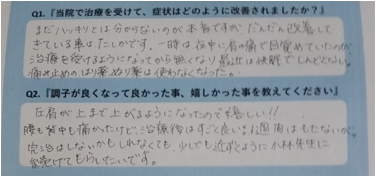 Q1.『当院で治療を受けて、症状はどのように改善されましたか？』
まだハッキリとは分からないのが本当ですが、だんだん改善して
きている事はたしかです。一時は夜中に肩の痛で目覚めていたのが
治療を受けるようになってから無くなり最近は快眠でしんどくない。
痛み止めのはり薬、ぬり薬は使わなくなった。
Q2.『調子が良くなって良かった事、嬉しかった事を教えてください』
左肩が上まで上がるようになったので嬉しい!!
腰も背中も痛かったけど、治療後はすごく良い。1週間はもたないが、
完治はしないかもしれなくても、少しでも近ずくように小林先生に
受けてもらいたいです。